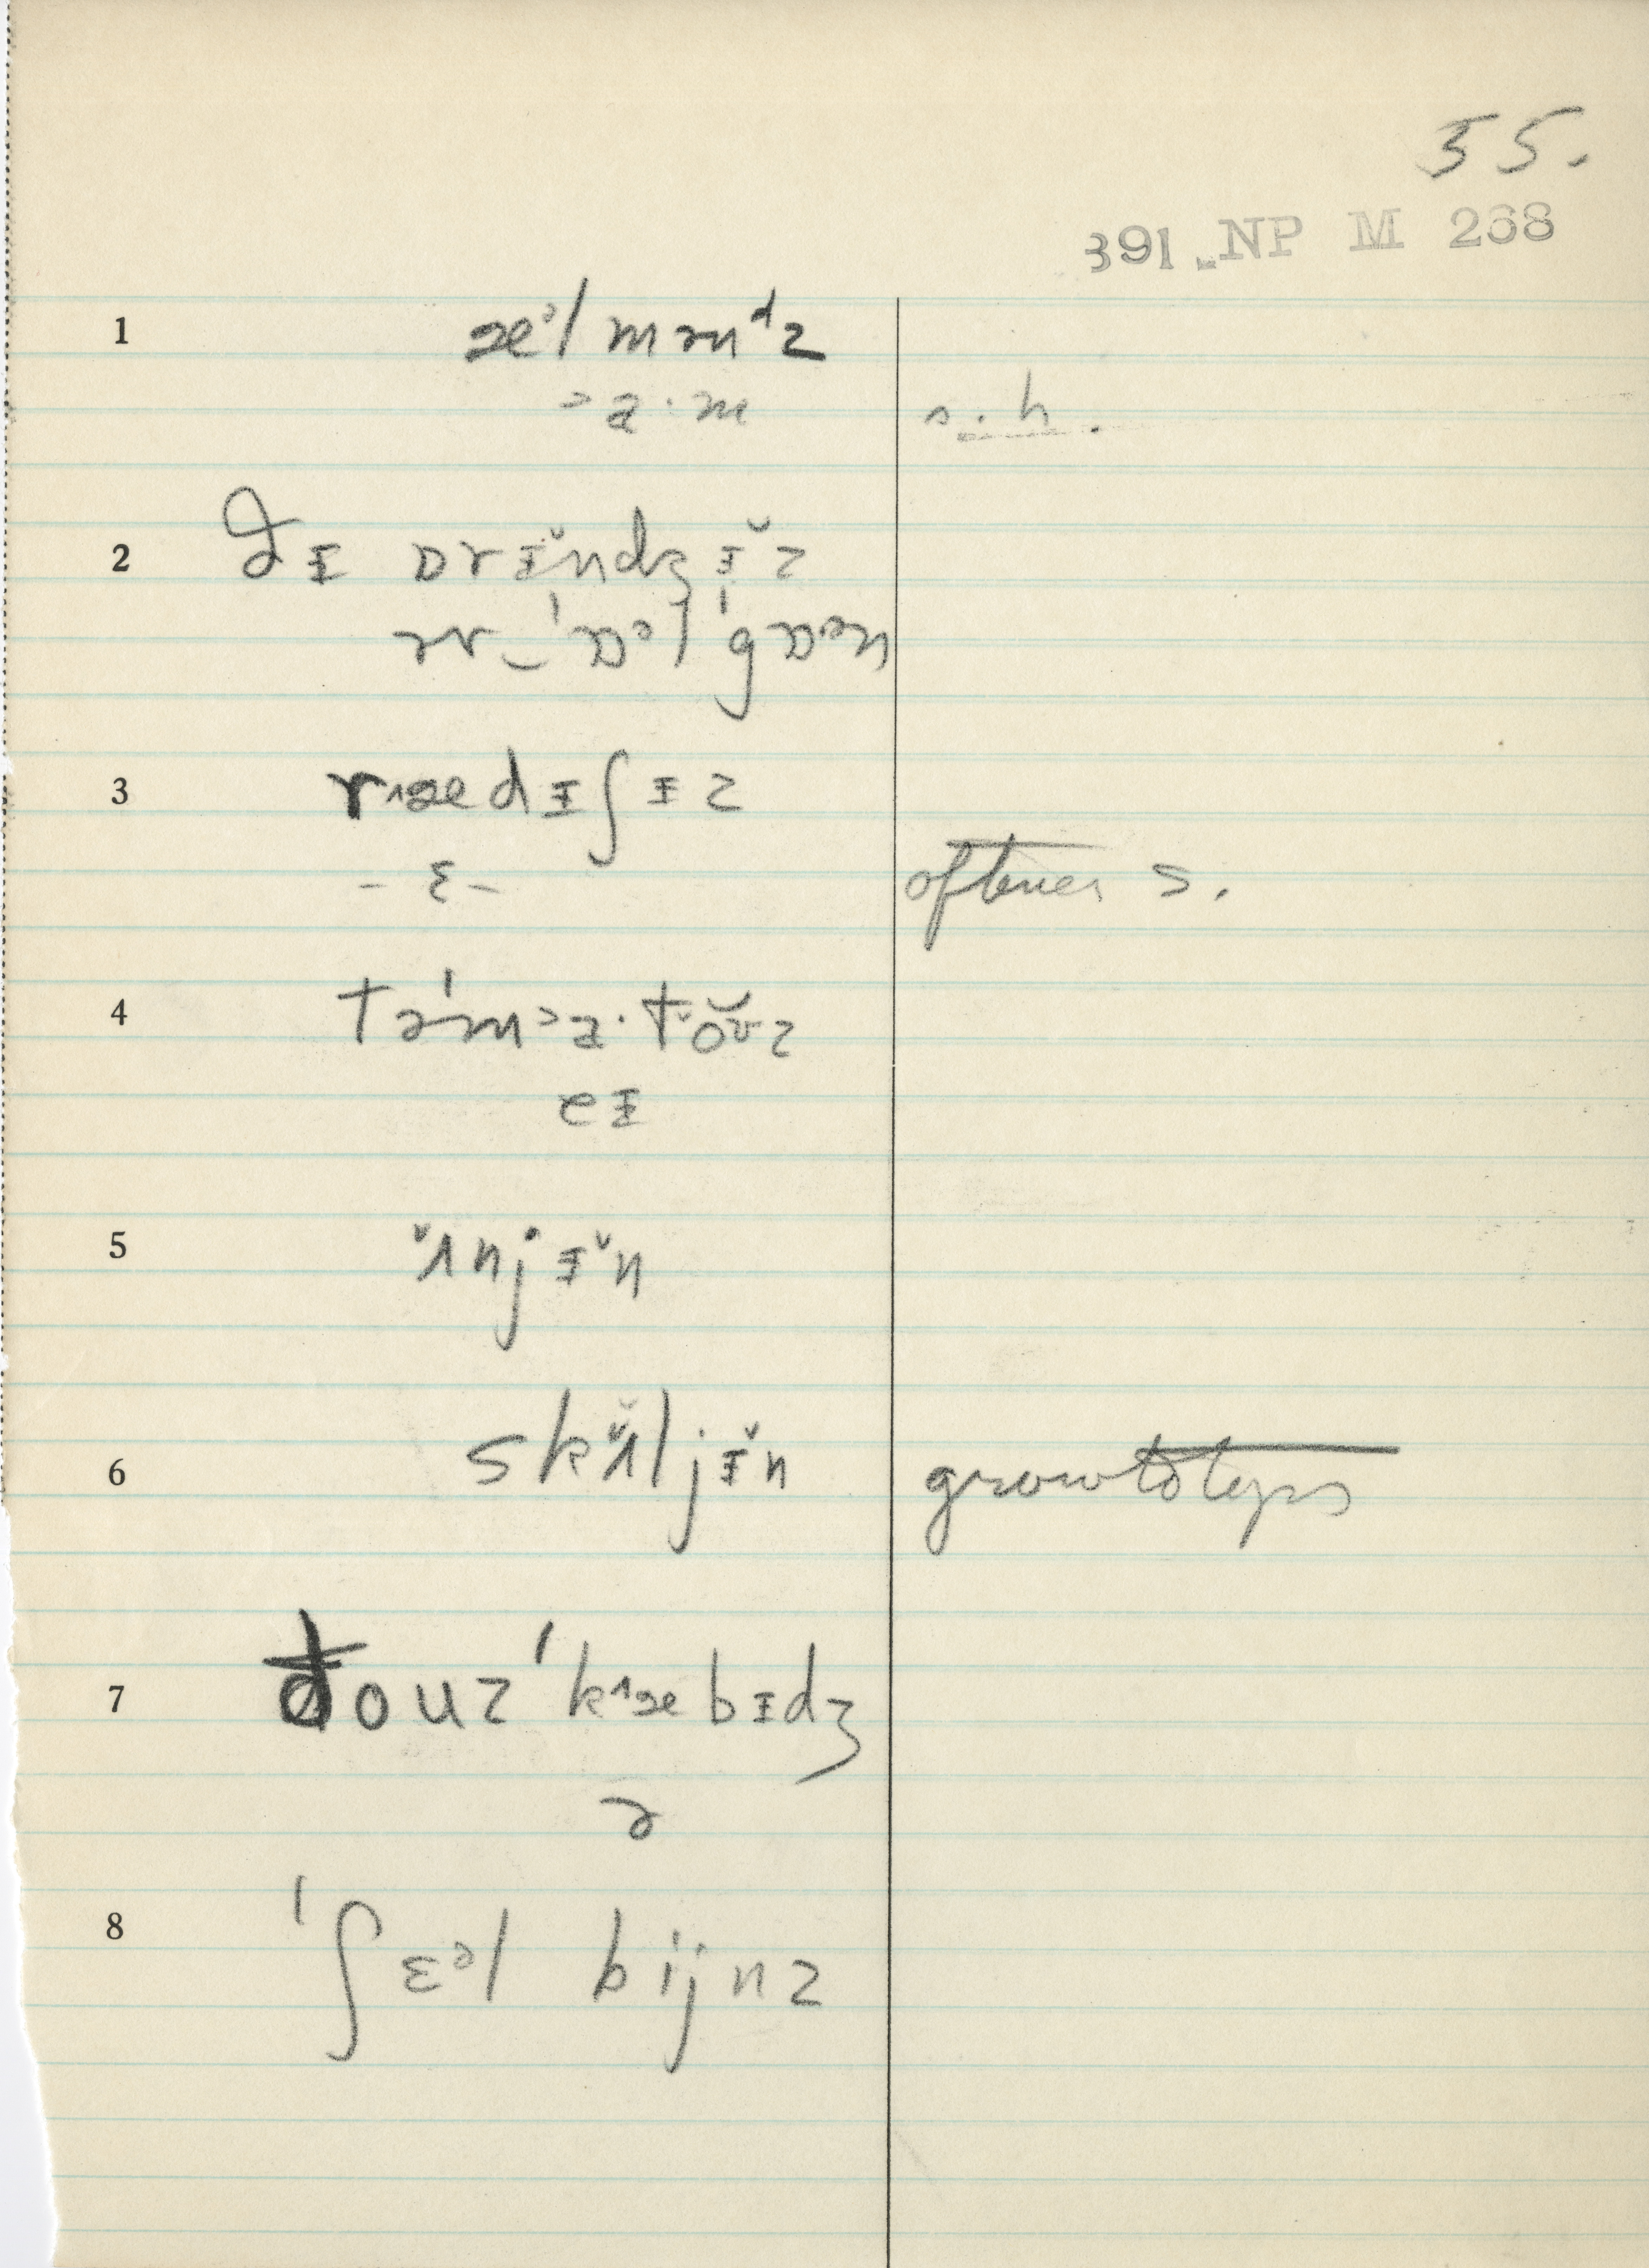 55.
391 NP M 268
1 æᵊl mən ᵈz
ᵊɑ·m s. h.
2 ðɪ ɒrɪ̆ndʒɪ̆z
ər ‿ˈɒᵊl ˈgɒᵊn
3 r^ædɪʃɪz
- ɛ - oftener s.
4 təˈmᵊɑ·tŏʊ̆z
eɪ
5 ʌ̆njɪ̆n
6 skʌ̆ljɪ̆n growth tops
7 ðouz ˈk^æbɪdʒ
ə
8 ˈʃɛᵊl bijnz